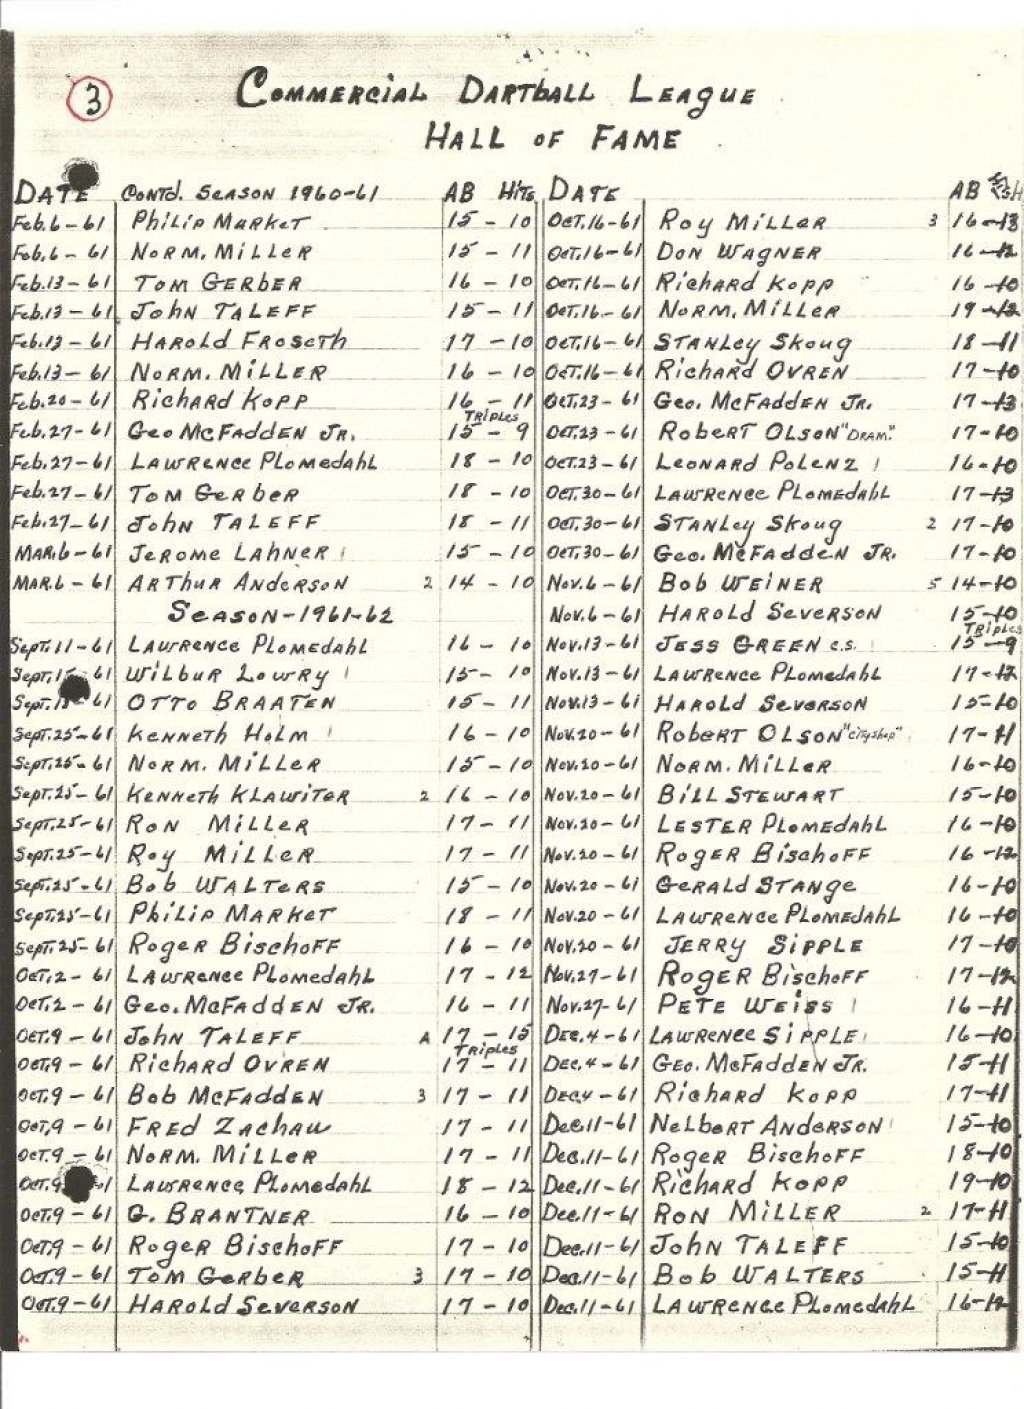 3
Commercial Dartball League
Hall of Fame
Date Contd. Season 1960-61 AB Hits
Feb. 6-61 Philip Market 15-10
Feb. 6-61 Norm. Miller 15-11
Feb. 13-61 Tom Gerber 16-10
Feb. 13-61 John Taleff 15-11
Feb. 13-61 Harold Froseth 17-10
Feb. 13-61 Norm. Miller 16-10
Feb. 20-61 Richard Kopp 16-11
Triples
Feb. 27-61 Geo McFadden Jr. 15-9
Feb. 27-61 Lawrence Plomedahl 18-10
Feb. 27-61 Tom Gerber 18-10
Feb. 27-61 John Taleff 18-11
Mar. 6-61 Jerome Lahner 15-10
Mar. 6-61 Arthur Anderson 2 14-10
Season-1961-62
Sept. 11-61 Lawrence Plomedahl 16-10
Sept. 61 Wilbur Lowry 15-10
Sept. 61 Otto Braaten 15-11
Sept. 25-61 Kenneth Holm 16-10
Sept. 25-61 Norm. Miller 15-10
Sept. 25-61 Kenneth Klawiter 2 16-10
Sept. 25-61 Ron Miller 17-11
Sept. 25-61 Roy Miller 17-11
Sept. 25-61 Bob Walters 15-10
Sept. 25-61 Philip Market 18-11
Sept. 25-61 Roger Bischoff 16-10
Oct. 2-61 Lawrence Plomedahl 17-12
Oct. 2-61 Geo. McFadden Jr. 16-11
Oct. 9-61 John Taleff A 17-15
Triples
Oct. 9-61 Richard Ovren 17-11
Oct. 9-61 Bob McFadden 3 17-11
Oct. 9-61 Fred Zachaw 17-11
Oct. 9-61 Norm. Miller 17-11
Oct. 9 61 Lawrence Plomedahl 18-12
Oct. 9-61 G. Brantner 16-10
Oct. 9-61 Roger Bischoff 17-10
Oct. 9-61 Tom Gerber 3 17-10
Oct. 9-61 Harold Severson 17-10
Date AB
Oct. 16-61 Roy Miller 3 16-13
Oct. 16-61 Don Wagner 16-12
Oct. 16-61 Richard Kopp 16-10
Oct. 16-61 Norm. Miller 19-12
Oct. 16-61 Stanley Skoug 18-11
Oct. 16-61 Richard Ovren 17-10
Oct. 23-61 Geo. McFadden Jr. 17-13
Oct. 23-61 Robert Olson "Dram." 17-10
Oct. 23-61 Leonard Polenz 16-10
Oct. 30-61 Lawrence Plomedahl 17-13
Oct. 30-61 Stanley Skoug 2 17-10
Oct. 30-61 Geo. McFadden Jr. 17-10
Nov. 6-61 Bob Weiner 5 14-10
Nov. 6-61 Harold Severson 15-10
Triples
Nov. 13-61 Jess Green c.s. 15-9
Nov. 13-61 Lawrence Plomedahl 17-12
Nov. 13-61 Harold Severson 15-10
Nov. 20-61 Robert Olson "City shop" 17-11
Nov. 20-61 Norm. Miller 16-10
Nov. 20-61 Bill Stewart 15-10
Nov. 20-61 Lester Plomedahl 16-10
Nov. 20-61 Roger Bischoff 16-12
Nov. 20-61 Gerald Stange 16-10
Nov. 20-61 Lawrence Plomedahl 16-10
Nov. 20-61 Jerry Sipple 17-10
Nov. 27-61 Roger Bischoff 17-12
Nov. 27-61 Pete Weiss 16-11
Dec. 4-61 Lawrence Sipple 16-10
Dec. 4-61 Geo. McFadden Jr. 15-11
Dec. 4-61 Richard Kopp 17-11
Dec. 11-61 Nelbert Anderson 15-10
Dec. 11-61 Roger Bischoff 18-10
Dec. 11-61 Richard Kopp 19-10
Dec. 11-61 Ron Miller 2 17-11
Dec. 11-61 John Taleff 15-10
Dec. 11-61 Bob Walters 15-11
Dec. 11-61 Lawrence Plomedahl 16-12